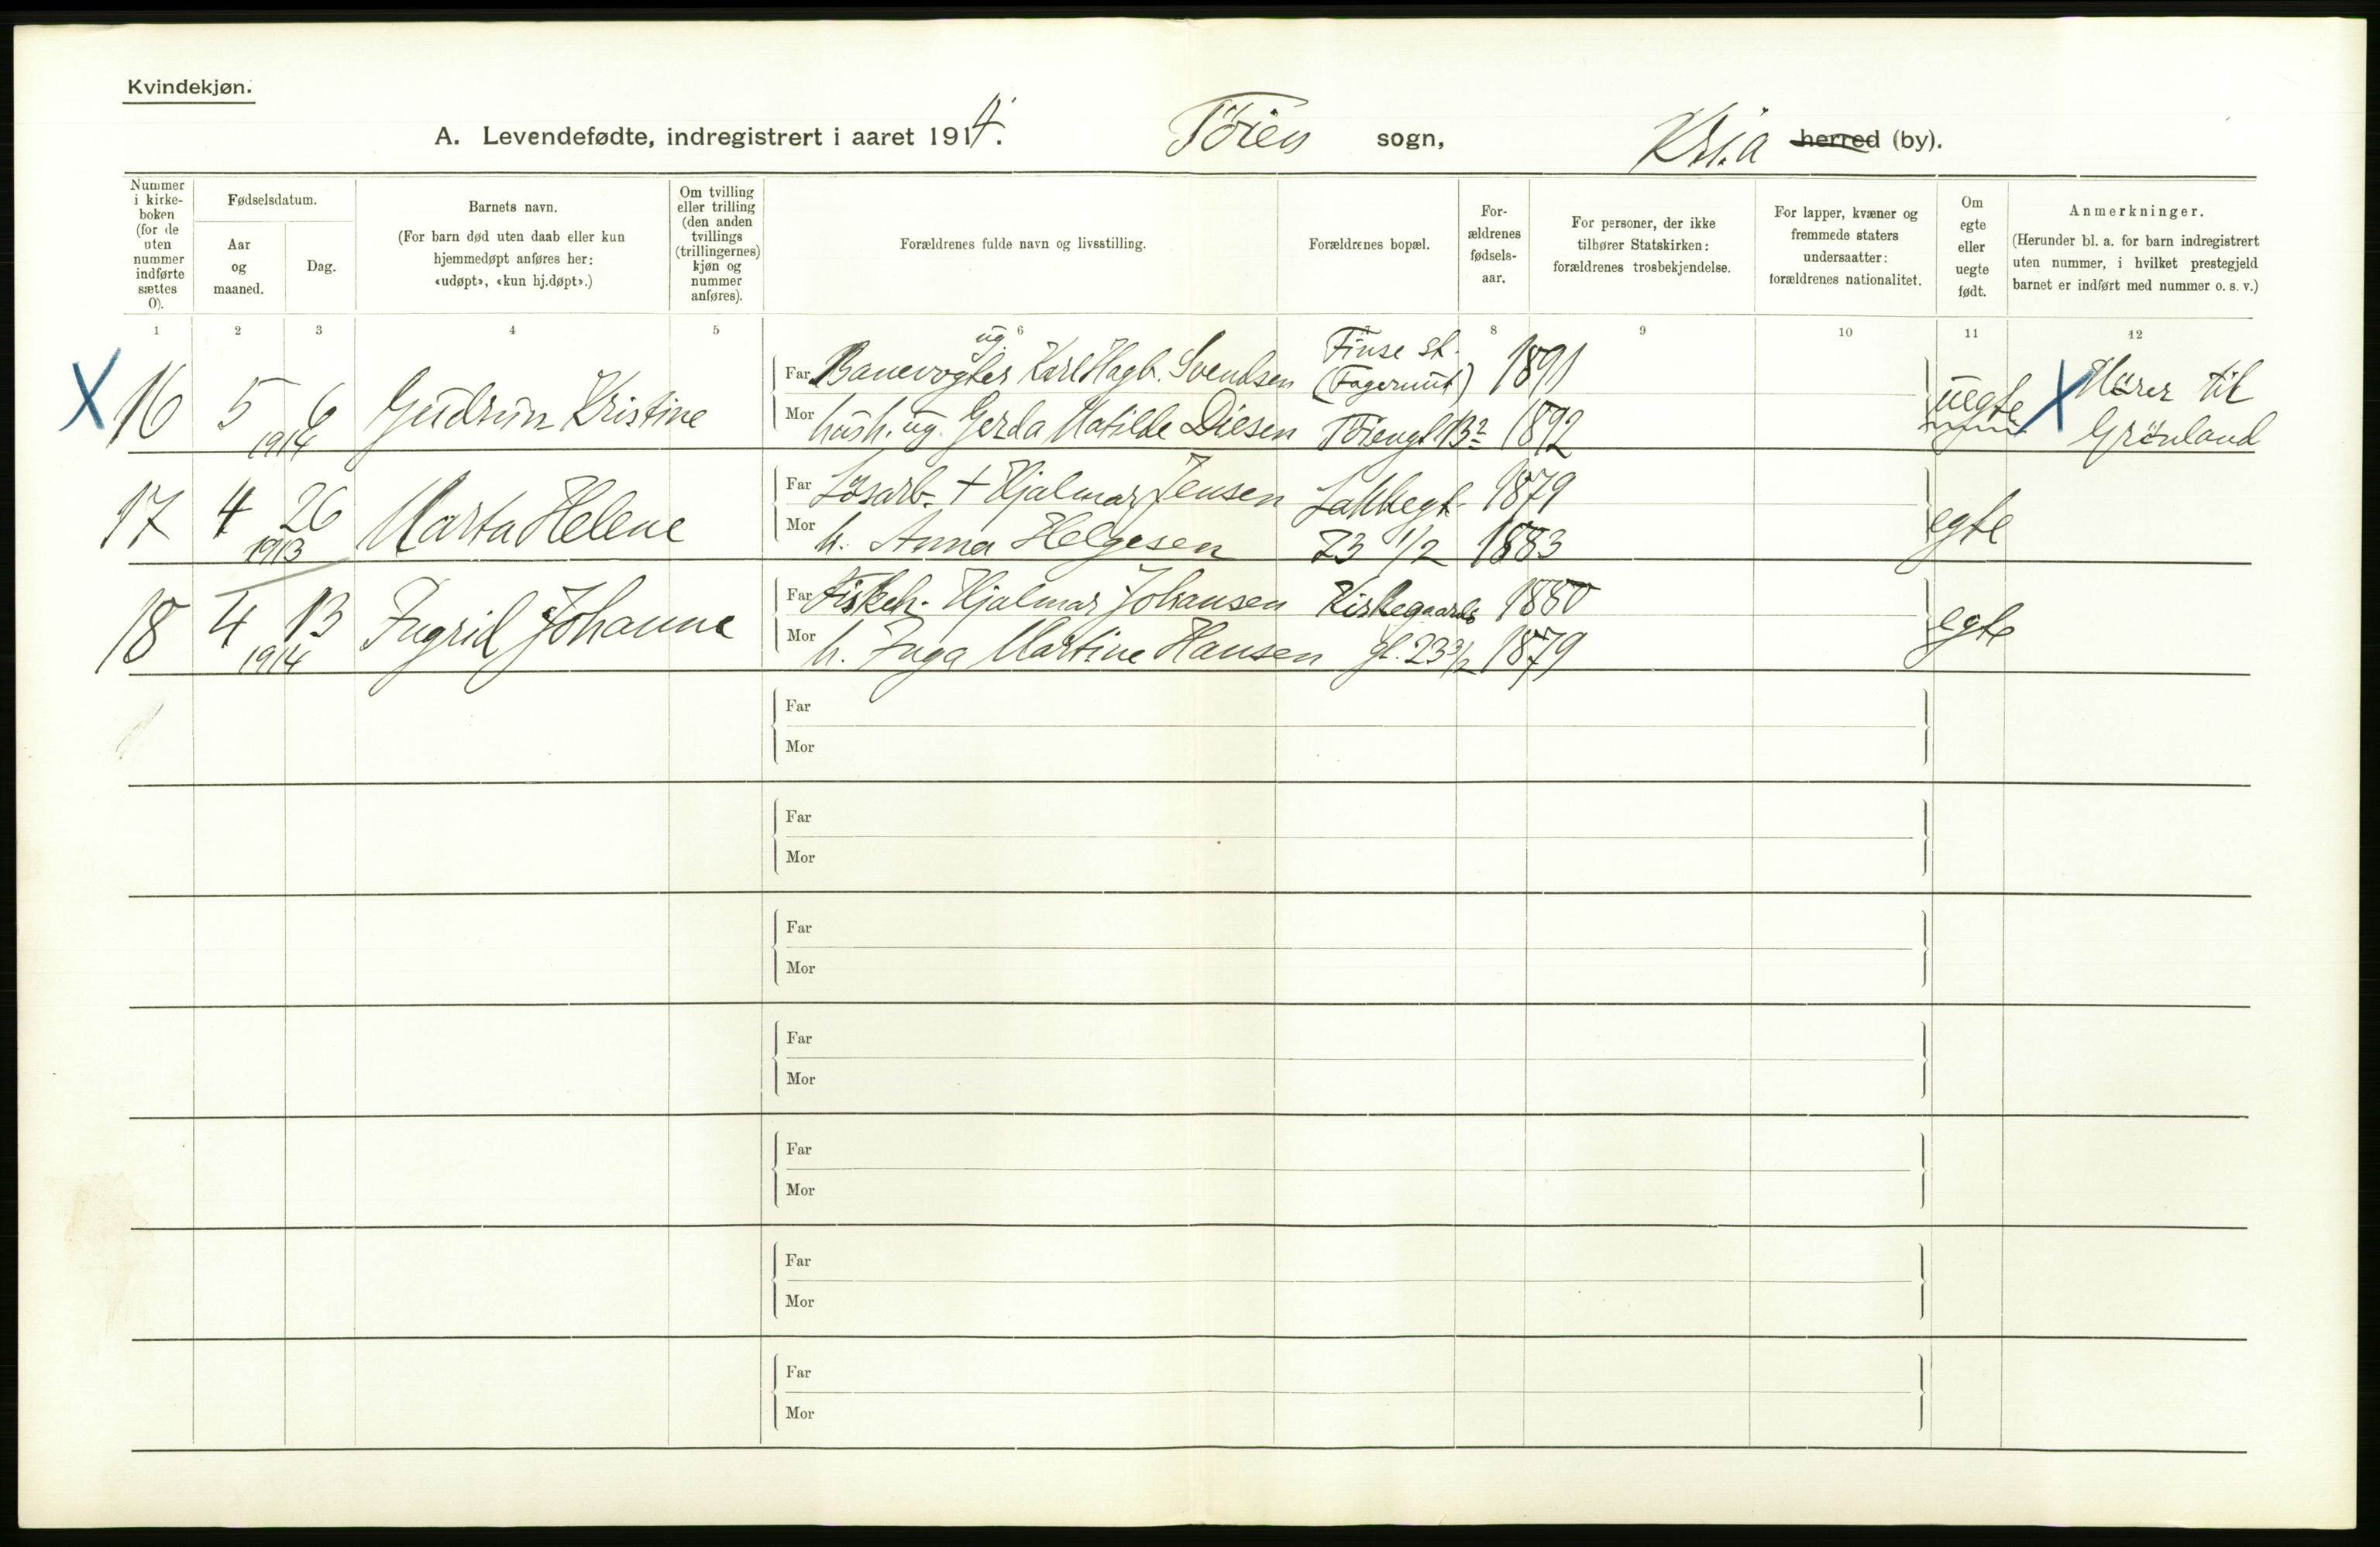 Kvindekjøn.
A. Levendefødte, indregistrert i aaret 1914. Töien sogn, Kria herred (by).
Nummer i kirke-boken (for de uten nummer indførte sættes 0).
Fødselsdatum.
Aar og maaned.
Dag.
Barnets navn.
(For barn død uten daab eller kun hjemmedøpt anføres her: «udøpt», «kun hj.døpt».)
Om tvilling eller trilling (den anden tvillings (trillingernes) kjøn og nummer anføres).
Forældrenes fulde navn og livsstilling.
Forældrenes bopæl.
For-ældrenes fødsels-aar.
For personer, der ikke tilhører Statskirken: forældrenes trosbekjendelse.
For lapper, kvæner og fremmede staters undersaatter: forældrenes nationalitet.
Om egte eller uegte født.
Anmerkninger.
(Herunder bl. a. for barn indregistrert uten nummer, i hvilket prestegjeld barnet er indført med nummer o. s. v.)
1 2 3 4 5 6 7 8 9 10 11 12
X 16 5 6 1914 Gudrun Kristine
Far Banevogter ug. Karl Hagb. Svendsen Finse st. (Fagernut) 1891
Mor hush. ug. Gerda Matilde Diesen Töiengt 13² 1892
uegte X Hörer til Grönland
17 4 26 1913 Marta Helene
Far Løsarb. + Hjalmar Jensen Lakkegt. 1879
Mor h. Anna Helgesen 73 1/2 1883
egte
18 4 13 1914 Ingrid Johanne
Far Fiskeh. Hjalmar Johansen Kirkegaards 1880
Mor h. Inga Martine Hansen gt. 23 1879
egte
Far
Mor
Far
Mor
Far
Mor
Far
Mor
Far
Mor
Far
Mor
Far
Mor